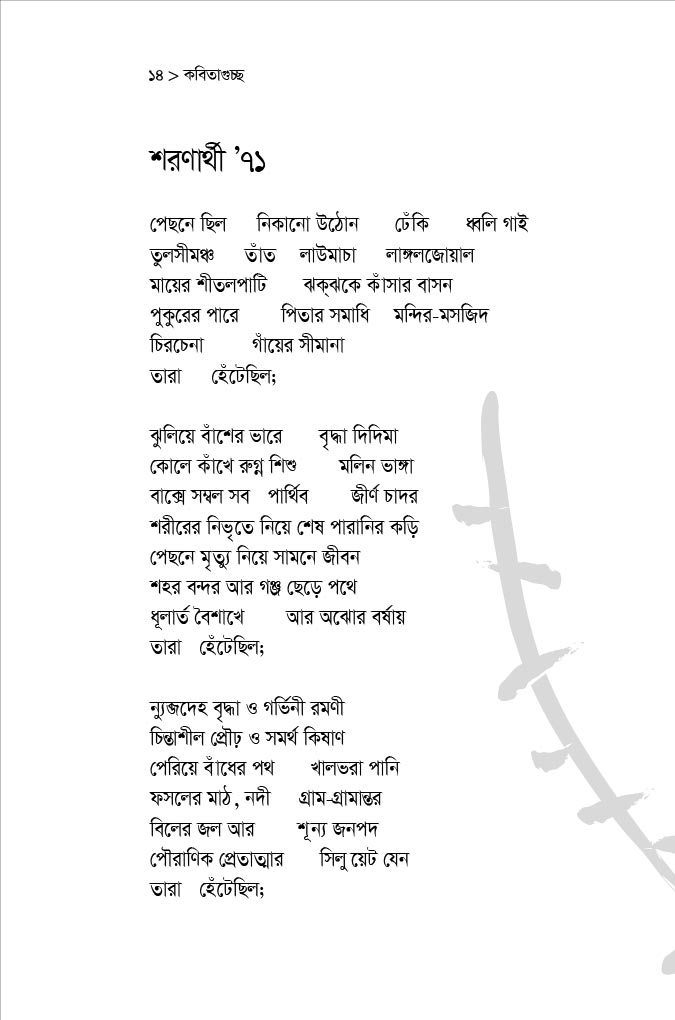 ১৪ > কবিতাগুচ্ছ
শরণার্থী ’৭১
পেছনে ছিল নিকানো উঠোন ঢেঁকি ধ্বলি গাই
তুলসীমঞ্চ তাঁত লাউমাচা লাঙ্গলজোয়াল
মায়ের শীতলপাটি ঝক্‌ঝকে কাঁসার বাসন
পুকুরের পারে পিতার সমাধি মন্দির-মসজিদ
চিরচেনা গাঁয়ের সীমানা
তারা হেঁটেছিল;
ঝুলিয়ে বাঁশের ভারে বৃদ্ধা দিদিমা
কোলে কাঁখে রুগ্ন শিশু মলিন ভাঙ্গা
বাক্সে সম্বল সব পার্থিব জীর্ণ চাদর
শরীরের নিভৃতে নিয়ে শেষ পারানির কড়ি
পেছনে মৃত্যু নিয়ে সামনে জীবন
শহর বন্দর আর গঞ্জ ছেড়ে পথে
ধূলার্ত বৈশাখে আর অঝোর বর্ষায়
তারা হেঁটেছিল;
ন্যুব্জদেহ বৃদ্ধা ও গর্ভিনী রমণী
চিন্তাশীল প্রৌঢ় ও সমর্থ কিষাণ
পেরিয়ে বাঁধের পথ খালভরা পানি
ফসলের মাঠ, নদী গ্রাম-গ্রামান্তর
বিলের জল আর শূন্য জনপদ
পৌরাণিক প্রেতাত্মার সিলুয়েট যেন
তারা হেঁটেছিল;